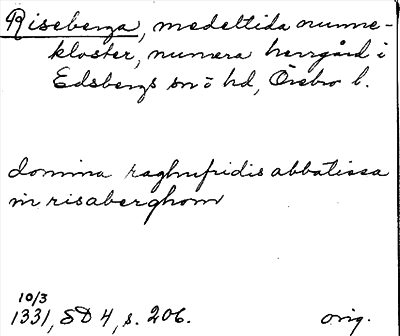 Riseberga, medeltida nunne-
kloster, numera herrgård i
Edsbergs sn o hd, Örebro l.
domina raghnfridis abbatissa
in risaberghom
10/3
1331, SD 4, s. 206. orig.